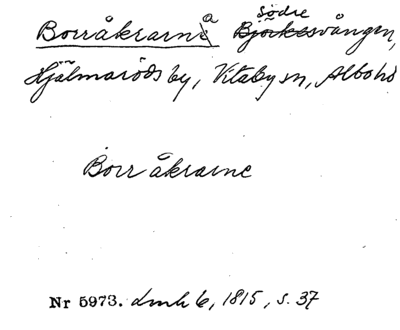 Borråkrarna Södre vången,
Hjälmaröds by, Vitaby sn, Albo hd
Borråkrarne
Nr 5973. Lmh 6, 1815, s. 37